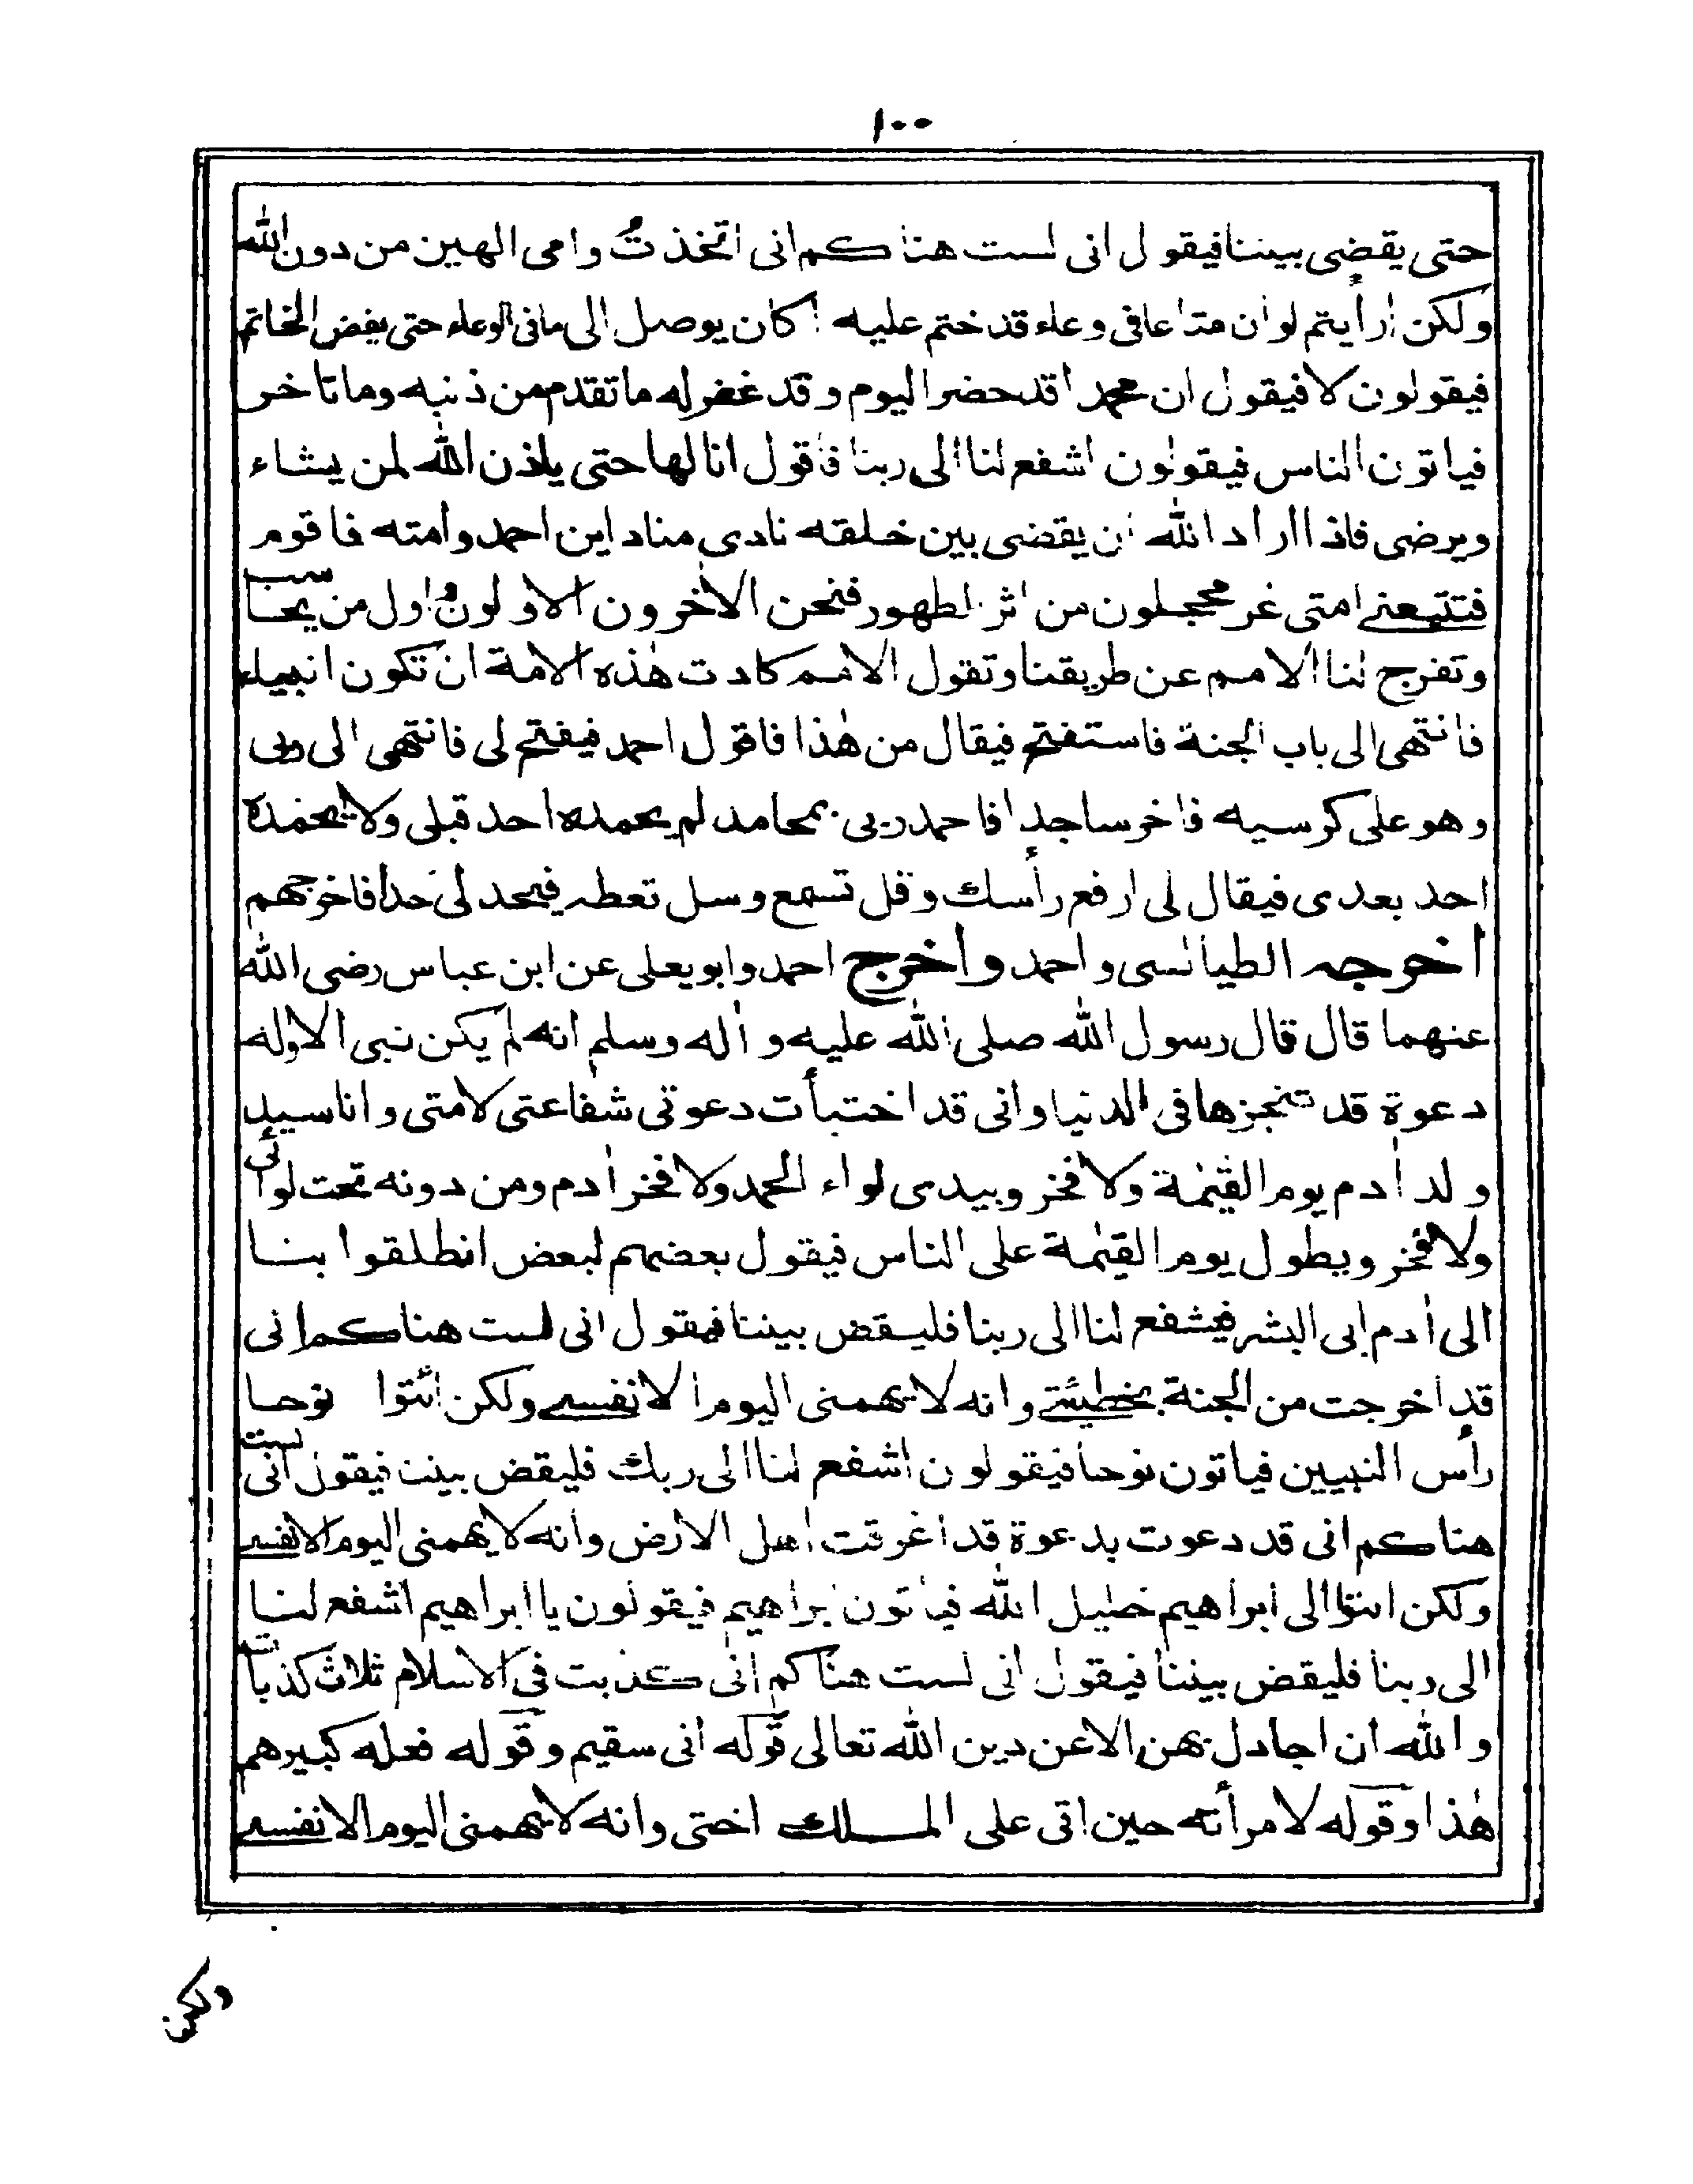 ١٠٠
حتى يقضى بيننا فيقول انى لست هناكم انى اتخذتُ وامى الهين من دون الله
ولكن ارأيتم لو ان متاعا فى وعاء قد ختم عليه اكان يوصل الى ما فى الوعاء حتى يفض الخاتم
فيقولون لا فيقول ان محمدا قد حضر اليوم وقد غفر له ما تقدم من ذنبه وما تاخر
فياتون الناس فيقولون اشفع لنا الى ربنا فاقول انا لها حتى ياذن الله لمن يشاء
ويرضى فاذا اراد الله ان يقضى بين خلقه نادى مناد اين احمد وامته فاقوم
فتتبعنے امتى غر محجلون من اثر الطهور فنحن الأخرون الاولون اول من يحاسب
وتفرج لنا الامم عن طريقنا وتقول الامم كادت هٰذه الامة ان تكون انبياء
فانتهى الى باب الجنة فاستفتح فيقال من هٰذا فاقول احمد فيفتح لى فانتهى الى ربى
وهو على كرسيه فاخر ساجدا فاحمد ربى بمحامد لم يحمده احد قبلى ولا يحمده
احد بعدى فيقال لى ارفع رأسك وقل تسمع وسل تعطه فيحد لى حدا فاخرجهم
اخرجه الطيالسى واحمد واخرج احمد وابو يعلى عن ابن عباس رضى الله
عنهما قال قال رسول الله صلى الله عليه و اٰله وسلم انه لم يكن نبى الا وله
دعوة قد تنجزها فى الدنيا وانى قد اختبأت دعوتى شفاعتى لامتى وانا سيد
ولد اٰدم يوم القيٰمة ولا فخر وبيدى لواء الحمد ولا فخر اٰدم ومن دونه تحت لوائى
ولا فخر ويطول يوم القيٰمة على الناس فيقول بعضهم لبعض انطلقوا بنا
الى اٰدم ابى البشر فيشفع لنا الى ربنا فليقض بيننا فيقول انى لست هناكم انى
قد اخرجت من الجنة بخطيئتے وانه لا يهمنى اليوم الا نفسے ولكن ائتوا نوحا
رأس النبيين فياتون نوحا فيقولون اشفع لنا الى ربك فليقض بيننا فيقول انى لست
هناكم انى قد دعوت بدعوة قد اغرقت اهل الارض وانه لا يهمنى اليوم الا نفسے
ولكن ائتوا الى ابراهيم خليل الله فياتون ابراهيم فيقولون يا ابراهيم اشفع لنا
الى ربنا فليقض بيننا فيقول انى لست هناكم انى كذبت فى الاسلام ثلاث كذبات
والله ان اجادل بهن الا عن دين الله تعالى قوله انى سقيم وقوله فعله كبيرهم
هٰذا وقوله لامرأته حين اتى على الملك اختى وانه لا يهمنى اليوم الا نفسے
ولكن